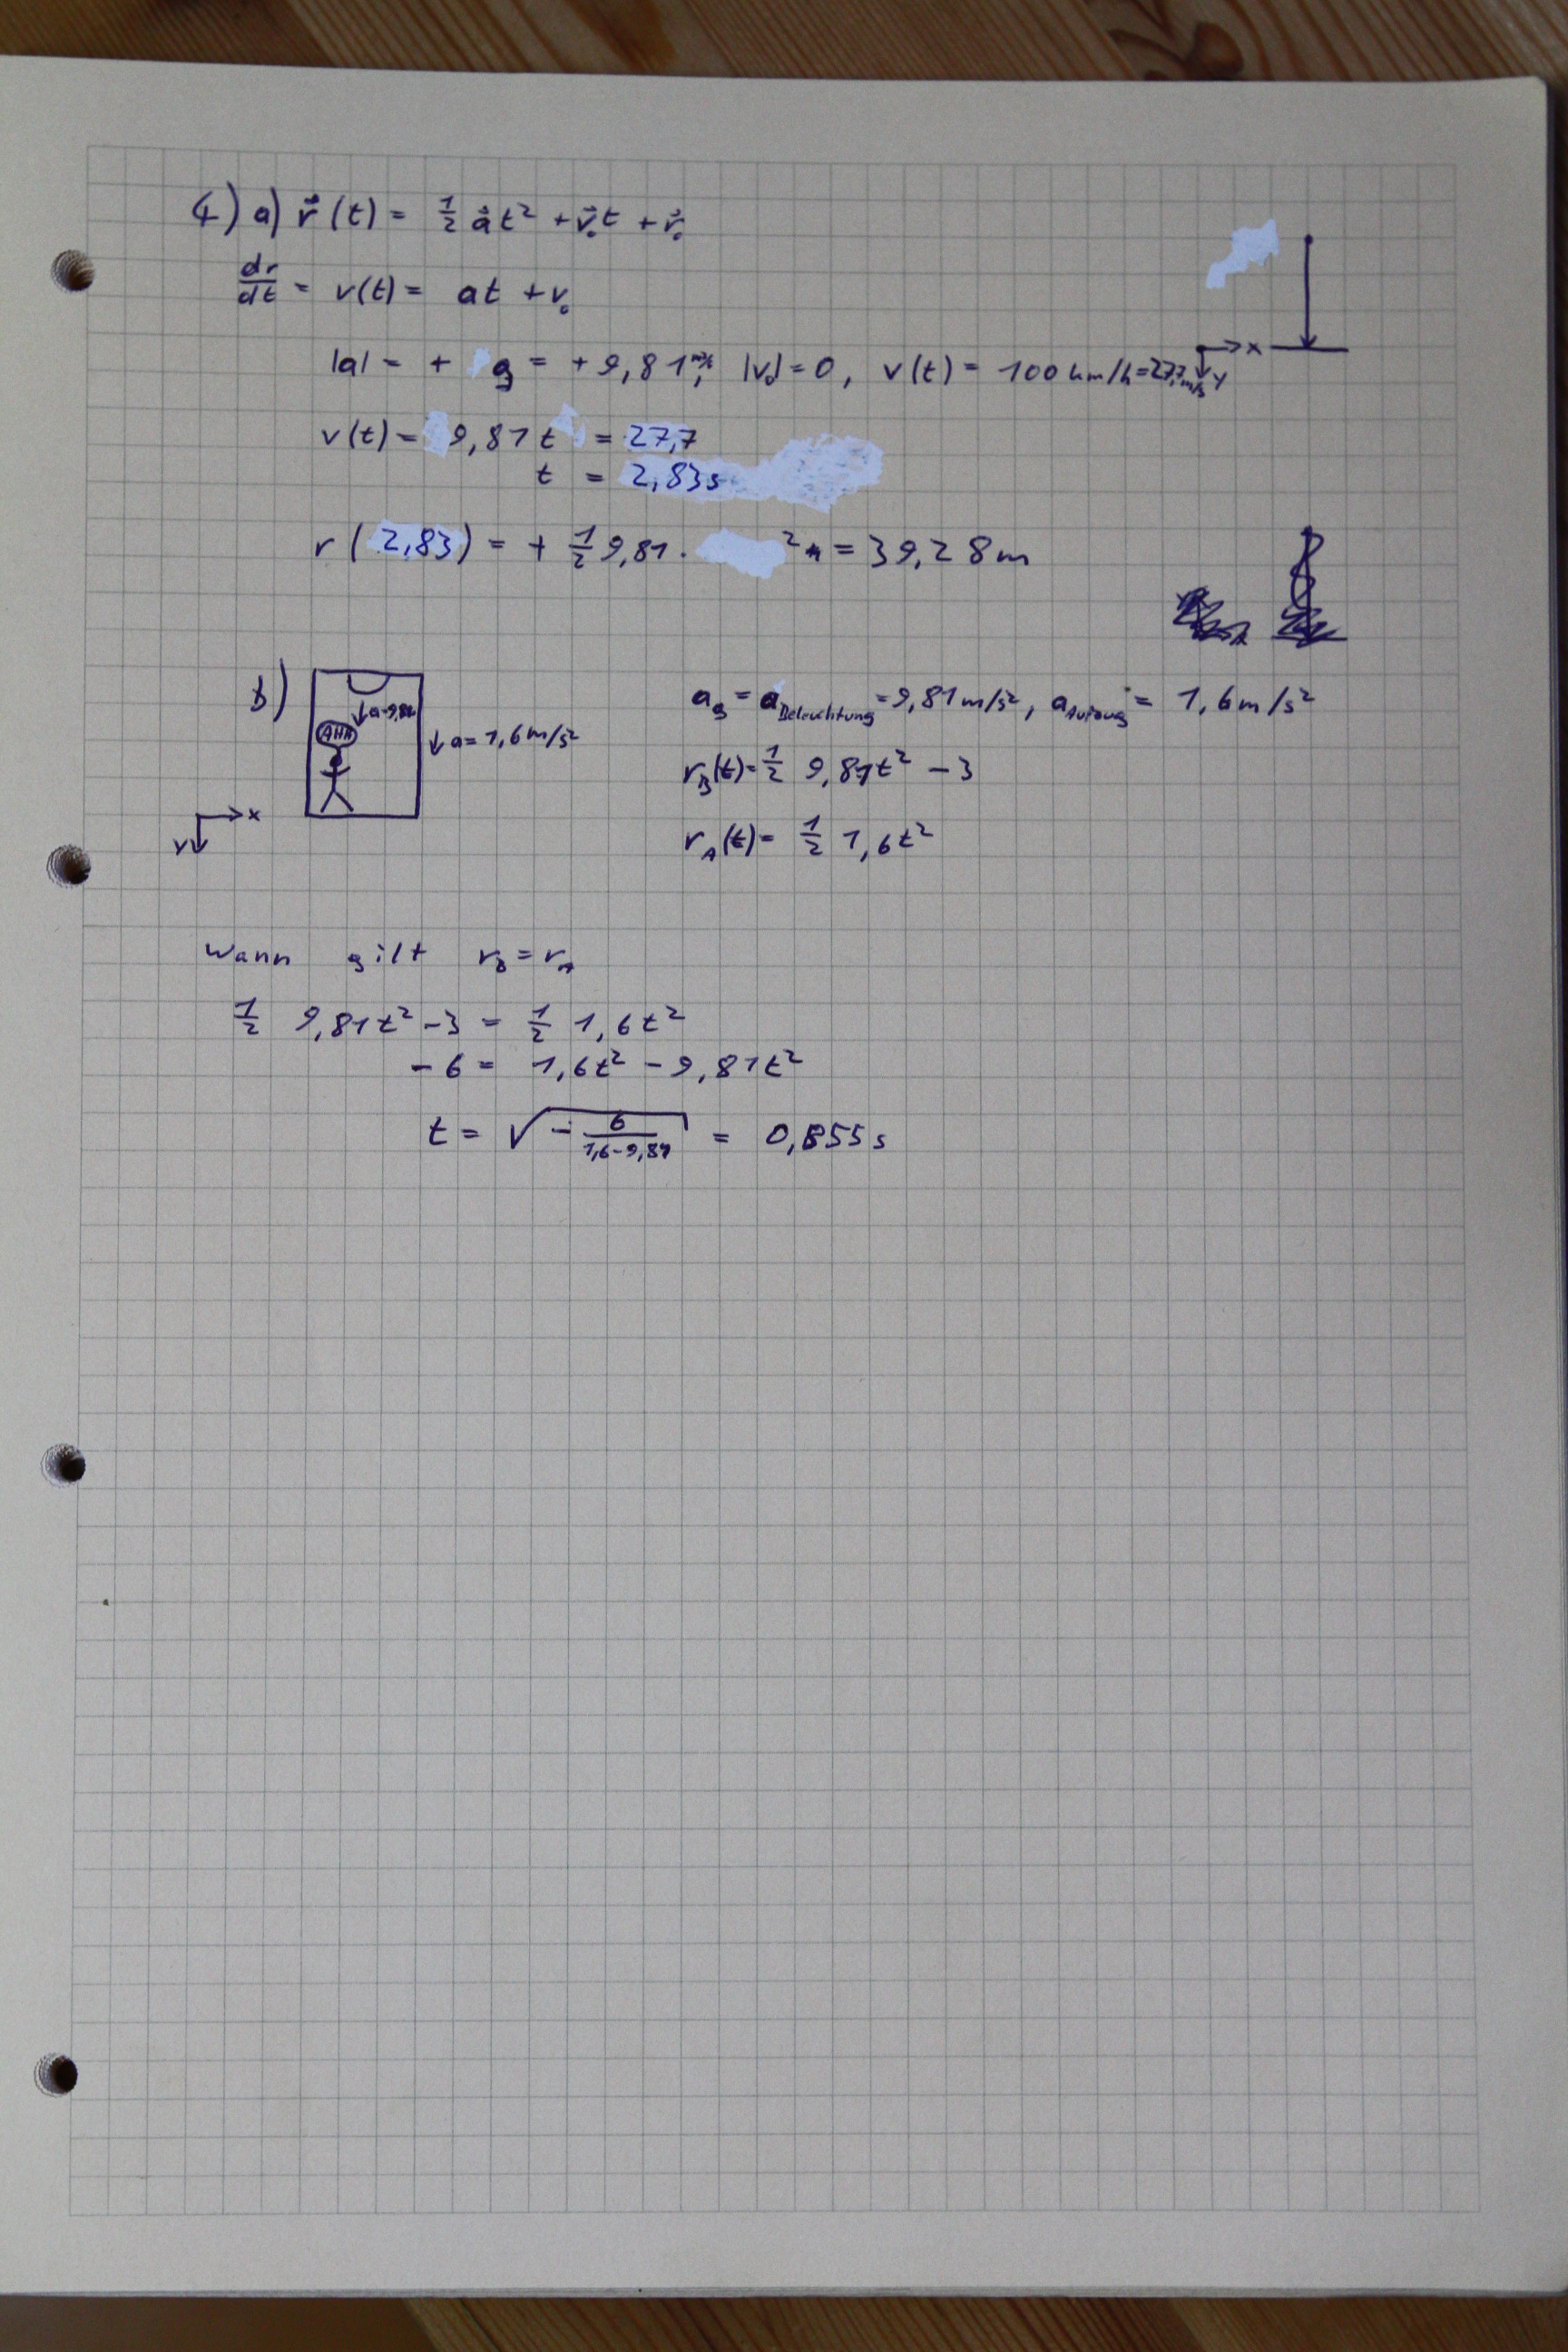 4) a) r⃗(t) = 1/2 a⃗ t² + v⃗₀t + r⃗₀
dr/dt = v(t) = at + v₀
|a| = + g = + 9,81 m/s², |v₀| = 0, v(t) = 100 km/h = 27,7 m/s
x
y
v(t) = 9,81 t = 27,7
t = 2,83s
r(2,83) = + 1/2 9,81 · ² = 39,28m
b)
AHH
↓ a = 1,6 m/s²
x
y
a_g = a_Beleuchtung = 9,81 m/s², a_Aufzug = 1,6 m/s²
r_B(t) = 1/2 9,81t² - 3
r_A(t) = 1/2 1,6t²
Wann gilt r_B = r_A
1/2 9,81t² - 3 = 1/2 1,6t²
- 6 = 1,6t² - 9,81t²
t = √(- 6/(1,6-9,81)) = 0,855 s